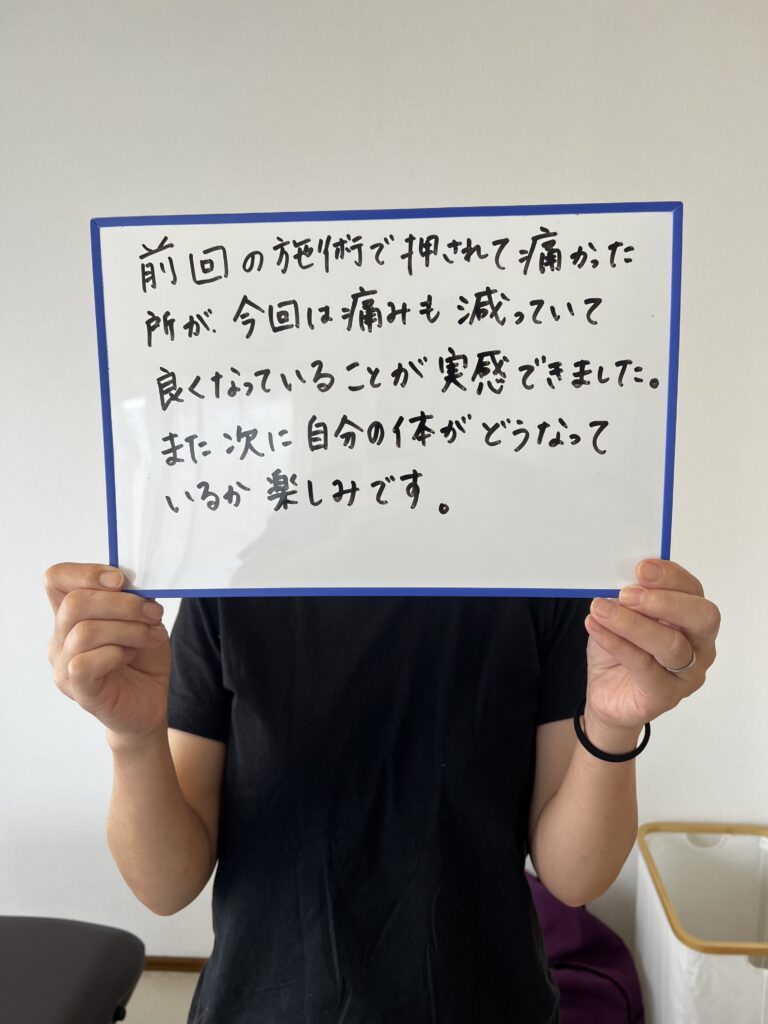 前回の施術で押されて痛かった
所が、今回は痛みも減っていて
良くなっていることが実感できました。
また次に自分の体がどうなって
いるか楽しみです。